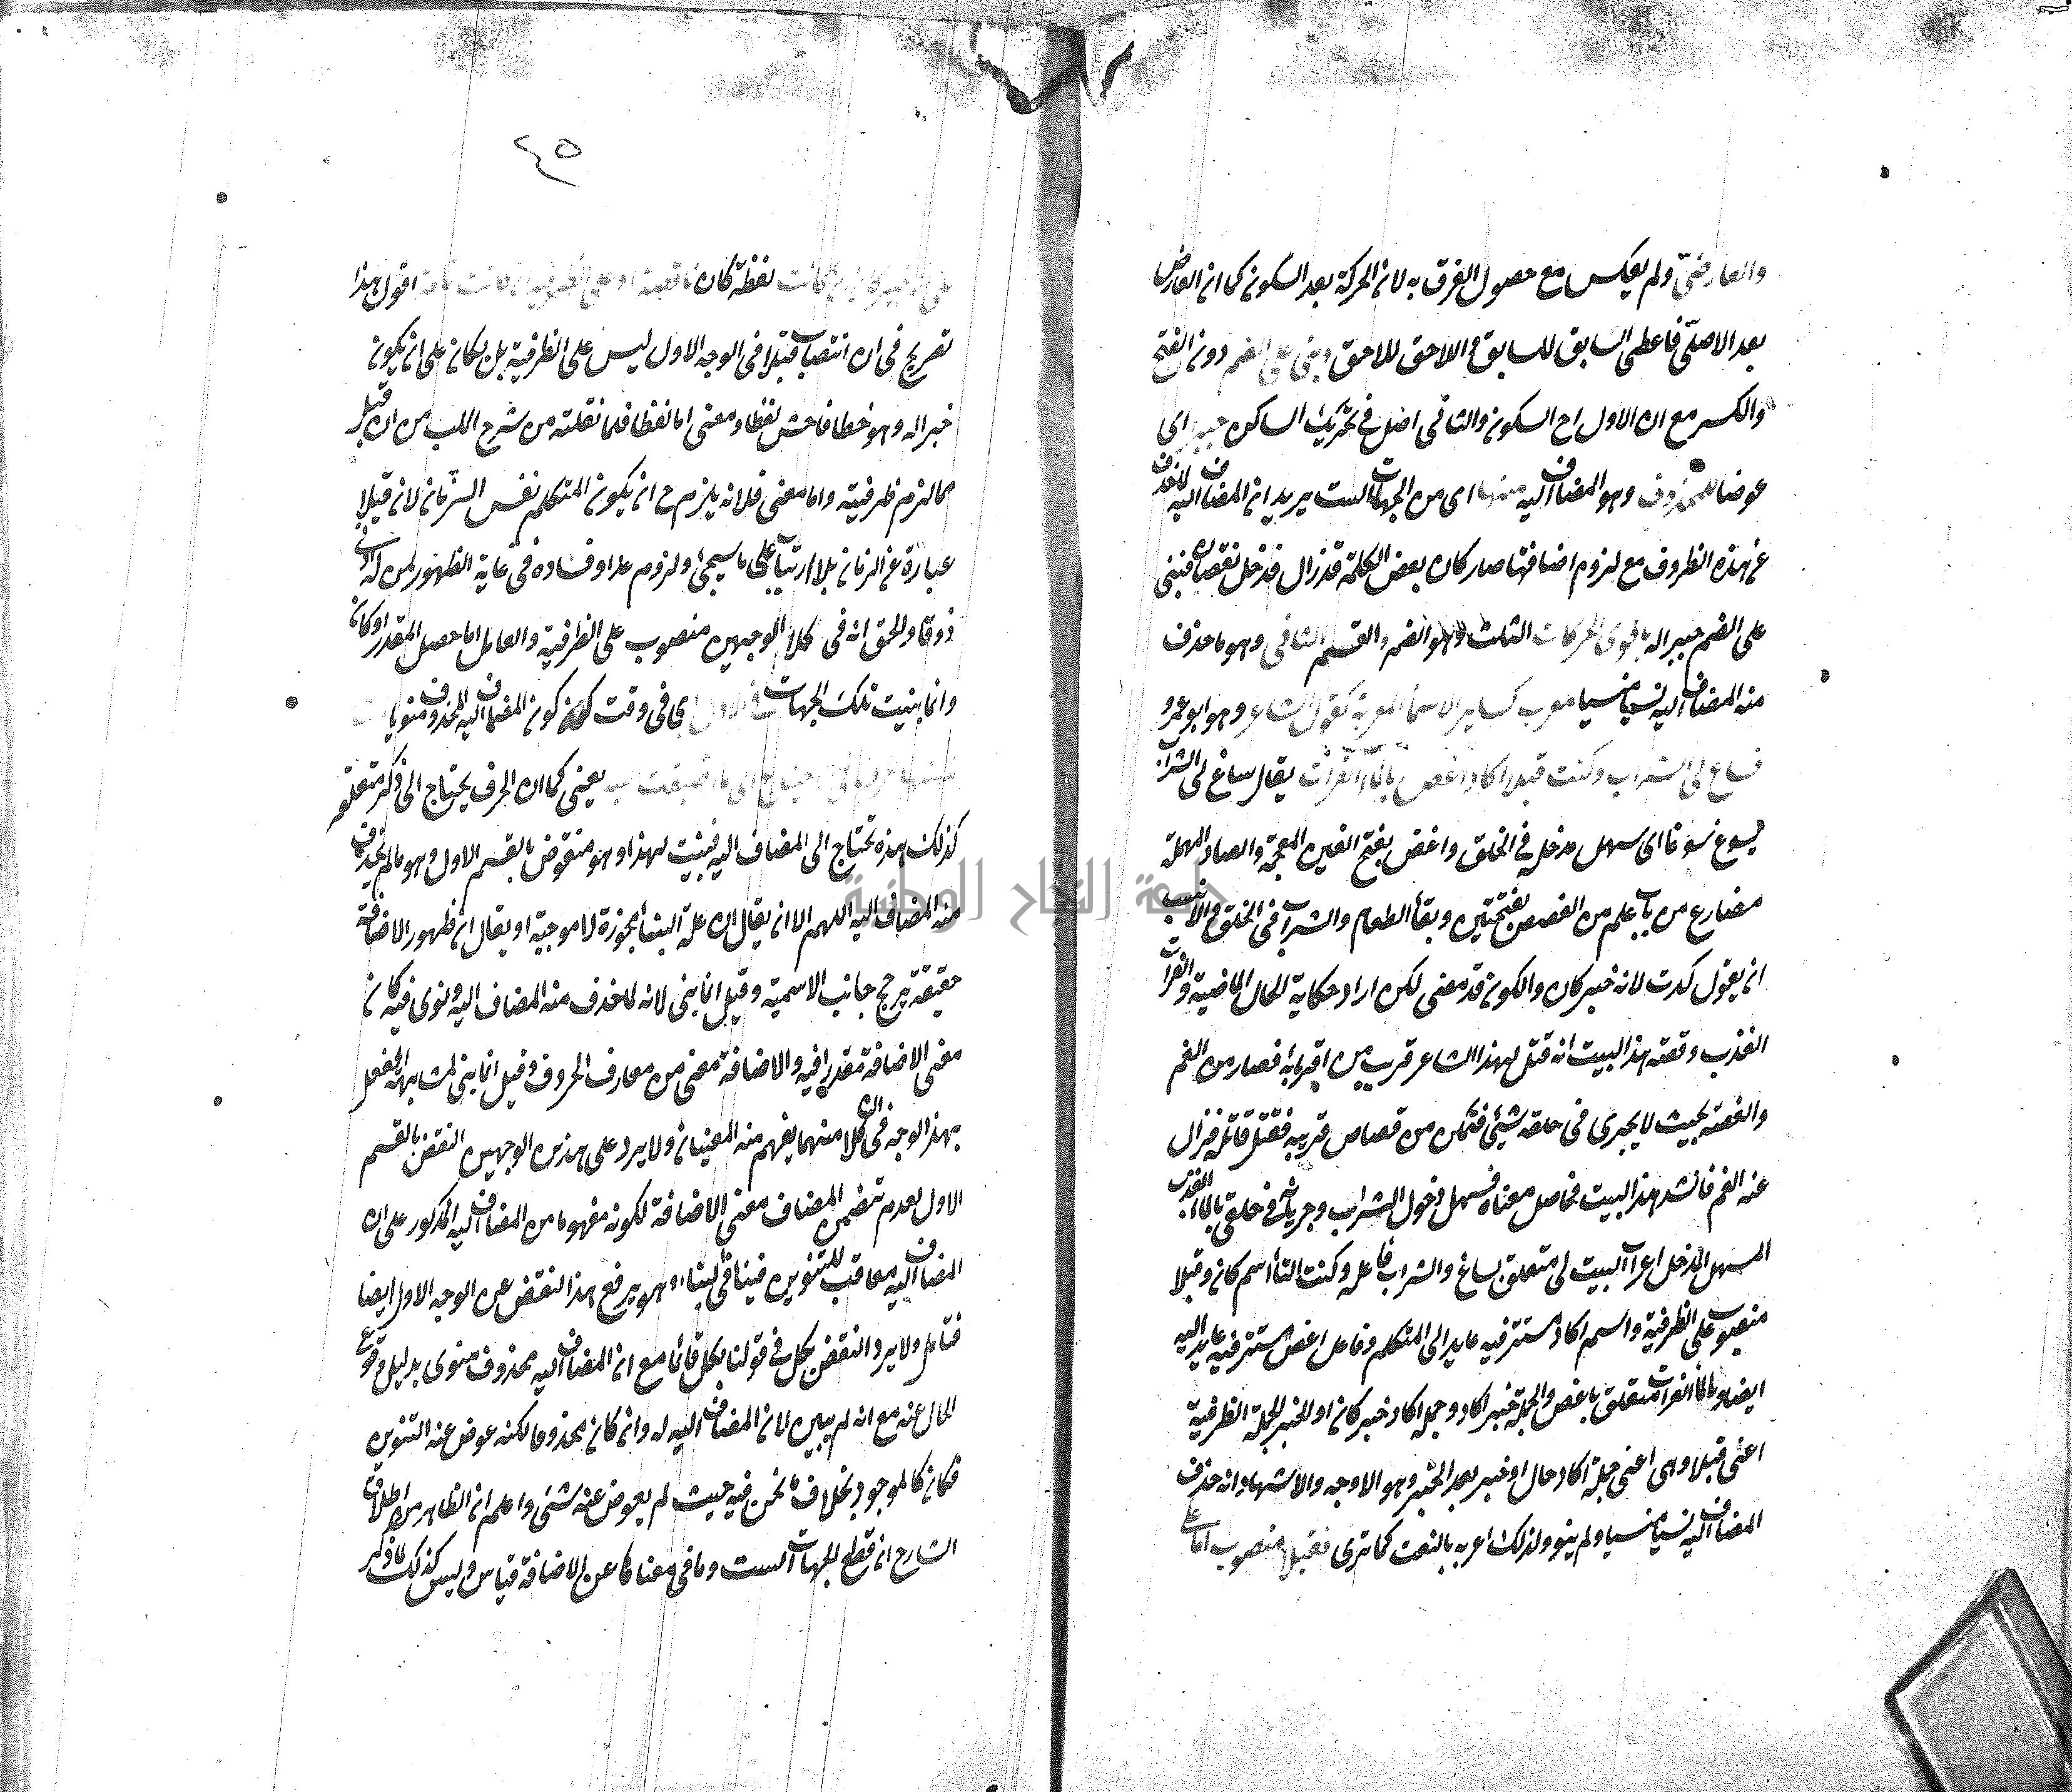 والعارضي ولم يعكس مع حصول الفرق به لان الحركة بعد السكون كما ان العارض
بعد الاصلي فاعطى السابق للسابق واللاحق للاحق وبني على الضم دون الفتح
والكسر مع ان الاول اخ السكون والثاني اصل في تحريك الساكن جبرا اى
عوضا للمحذوف وهو المضاف اليه منها اى من الجهات الست يريد ان المضاف اليه لما حذف
عن هذه الظروف مع لزوم اضافتها صار كان بعض الكلمة قد زال فدخل نقصان فبنى
على الضم جبرا له باقوى الحركات الثلث وهو الضم والقسم الثاني وهو ما حذف
منه المضاف اليه نسيا منسيا معرب كساير الاسماء المعربة كقول الشاعر وهو ابو عمرو
فساغ لى الشراب وكنت قبلا اكاد اغص بالماء الفرات يقال ساغ لى الشراب
يسوغ سوغا اى سهل مدخله في الحلق واغص بفتح الغين المعجمة والصاد المهملة
مضارع من باب علم من الغصص بفتحتين وبقاء الطعام والشراب في الحلق والانسب
ان يقول كدت لانه خبر كان والكون قد مضى لكن اراد حكاية الحال الماضية والفرات
العذب وقصة هذا البيت انه قتل لهذا الشاعر قريب من اقربائه فصار من الغم
والغصة بحيث لا يجرى في حلقه شيئ فتمكن من قصاص قريبه فقتل قاتله فزال
عنه الغم فانشد هذا البيت فحاصل معناه فسهل دخول الشراب وجريانه في حلقى بالماء العذب
المسهل المدخل اعراب البيت لى متعلق بساغ والشراب فاعله وكنت التاء اسم كان وقبلا
منصوب على الظرفية واسم اكاد مستتر فيه عايد الى المتكلم وفاعل اغص مستتر فيه عايد اليه
ايضا وبالماء الفرات متعلق باغص والجملة خبر اكاد وجملة اكاد خبر كان او الخبر الجملة الظرفية
اعنى قبلا وهى اعنى جملة اكاد حال او خبر بعد الخبر وهو الاوجه والاستشهاد انه حذف
المضاف اليه نسيا منسيا ولم ينو ولذلك اعربه بالنصب كما ترى فقبلا منصوب اما على
٤٥
لفظة كان ناقصة او على الظرفية ان كانت تامة اقول هذا
تصريح في ان انتصاب قبلا في الوجه الاول ليس على الظرفية بل لكان على ان يكون
خبرا له وهو خطا فاحش لفظا ومعنى اما لفظا فلما نقلته من شرح اللب من ان قبل
مما لزم ظرفيته واما معنى فلانه يلزم ح ان يكون المتكلم نفس الزمان لان قبلا
عبارة عن الزمان بلا ارتياب على ما سيجئ ولزوم هذا وفساده في غاية الظهور لمن له ادنى
ذوق والحق انه في كلا الوجهين منصوب على الظرفية والعامل اما حصل المقدر او كان
وانما بنيت تلك الجهات في الاول اى في وقت كون المضاف اليه المحذوف منويا
يعنى كما ان الحرف يحتاج الى ذكر متعلقه
كذلك هذه تحتاج الى المضاف اليه فبنيت لهذا وهو منقوض بالقسم الاول وهو ما لم يحذف
منه المضاف اليه اللهم الا ان يقال ان علة البناء مجوزة لا موجبة او يقال ان ظهور الاضافة
حقيقة يرجح جانب الاسمية وقيل انما بنى لانه لما حذف منه المضاف اليه ونوى فيه كان
معنى الاضافة مقدرا فيه والاضافة معنى من معارف الحروف وقيل انما بنى لمشابهته الفعل
بهذا الوجه في ان كلا منهما يفهم منه المعنيان ولا يرد على هذين الوجهين النقض بالقسم
الاول لعدم تضمن المضاف معنى الاضافة لكونه مفهوما من المضاف اليه المذكور على ان
المضاف اليه معاقب للتنوين فينافي البناء وهو يرفع هذا النقض عن الوجه الاول ايضا
فتامل ولا يرد النقض بكل في قولنا بكل قائما مع ان المضاف اليه محذوف منوى بدليل وقوع
الحال عنه مع انه لم يبين لان المضاف اليه له وان كان محذوفا لكنه عوض عنه التنوين
فكان كالموجود بخلاف ما نحن فيه حيث لم يعوض عنه شئ واعلم ان الظاهر من اطلاق
الشارح ان قطع الجهات الست وما في معناها عن الاضافة قياس وليس كذلك لما ذكر